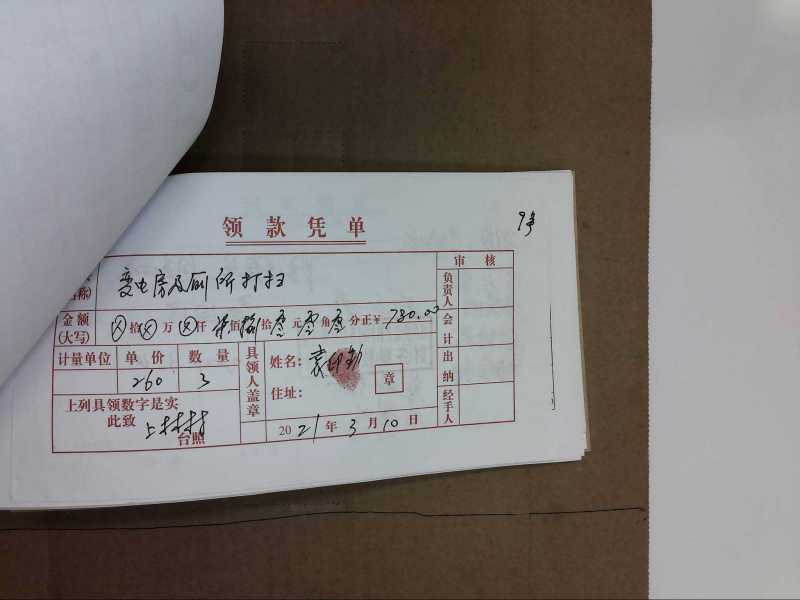 领款凭单
9号
变电房及厕所打扫
称)
审核
金额
(大写)
拾 万 仟 柒佰捌拾零元零角零分正¥ 780.00
计量单位 单价 数量
260 3
上列具领数字是实
此致
上村村
台照
具领人盖章
姓名:袁印勤
住址:
章
2021年3月10日
负责人
会计
出纳
经手人